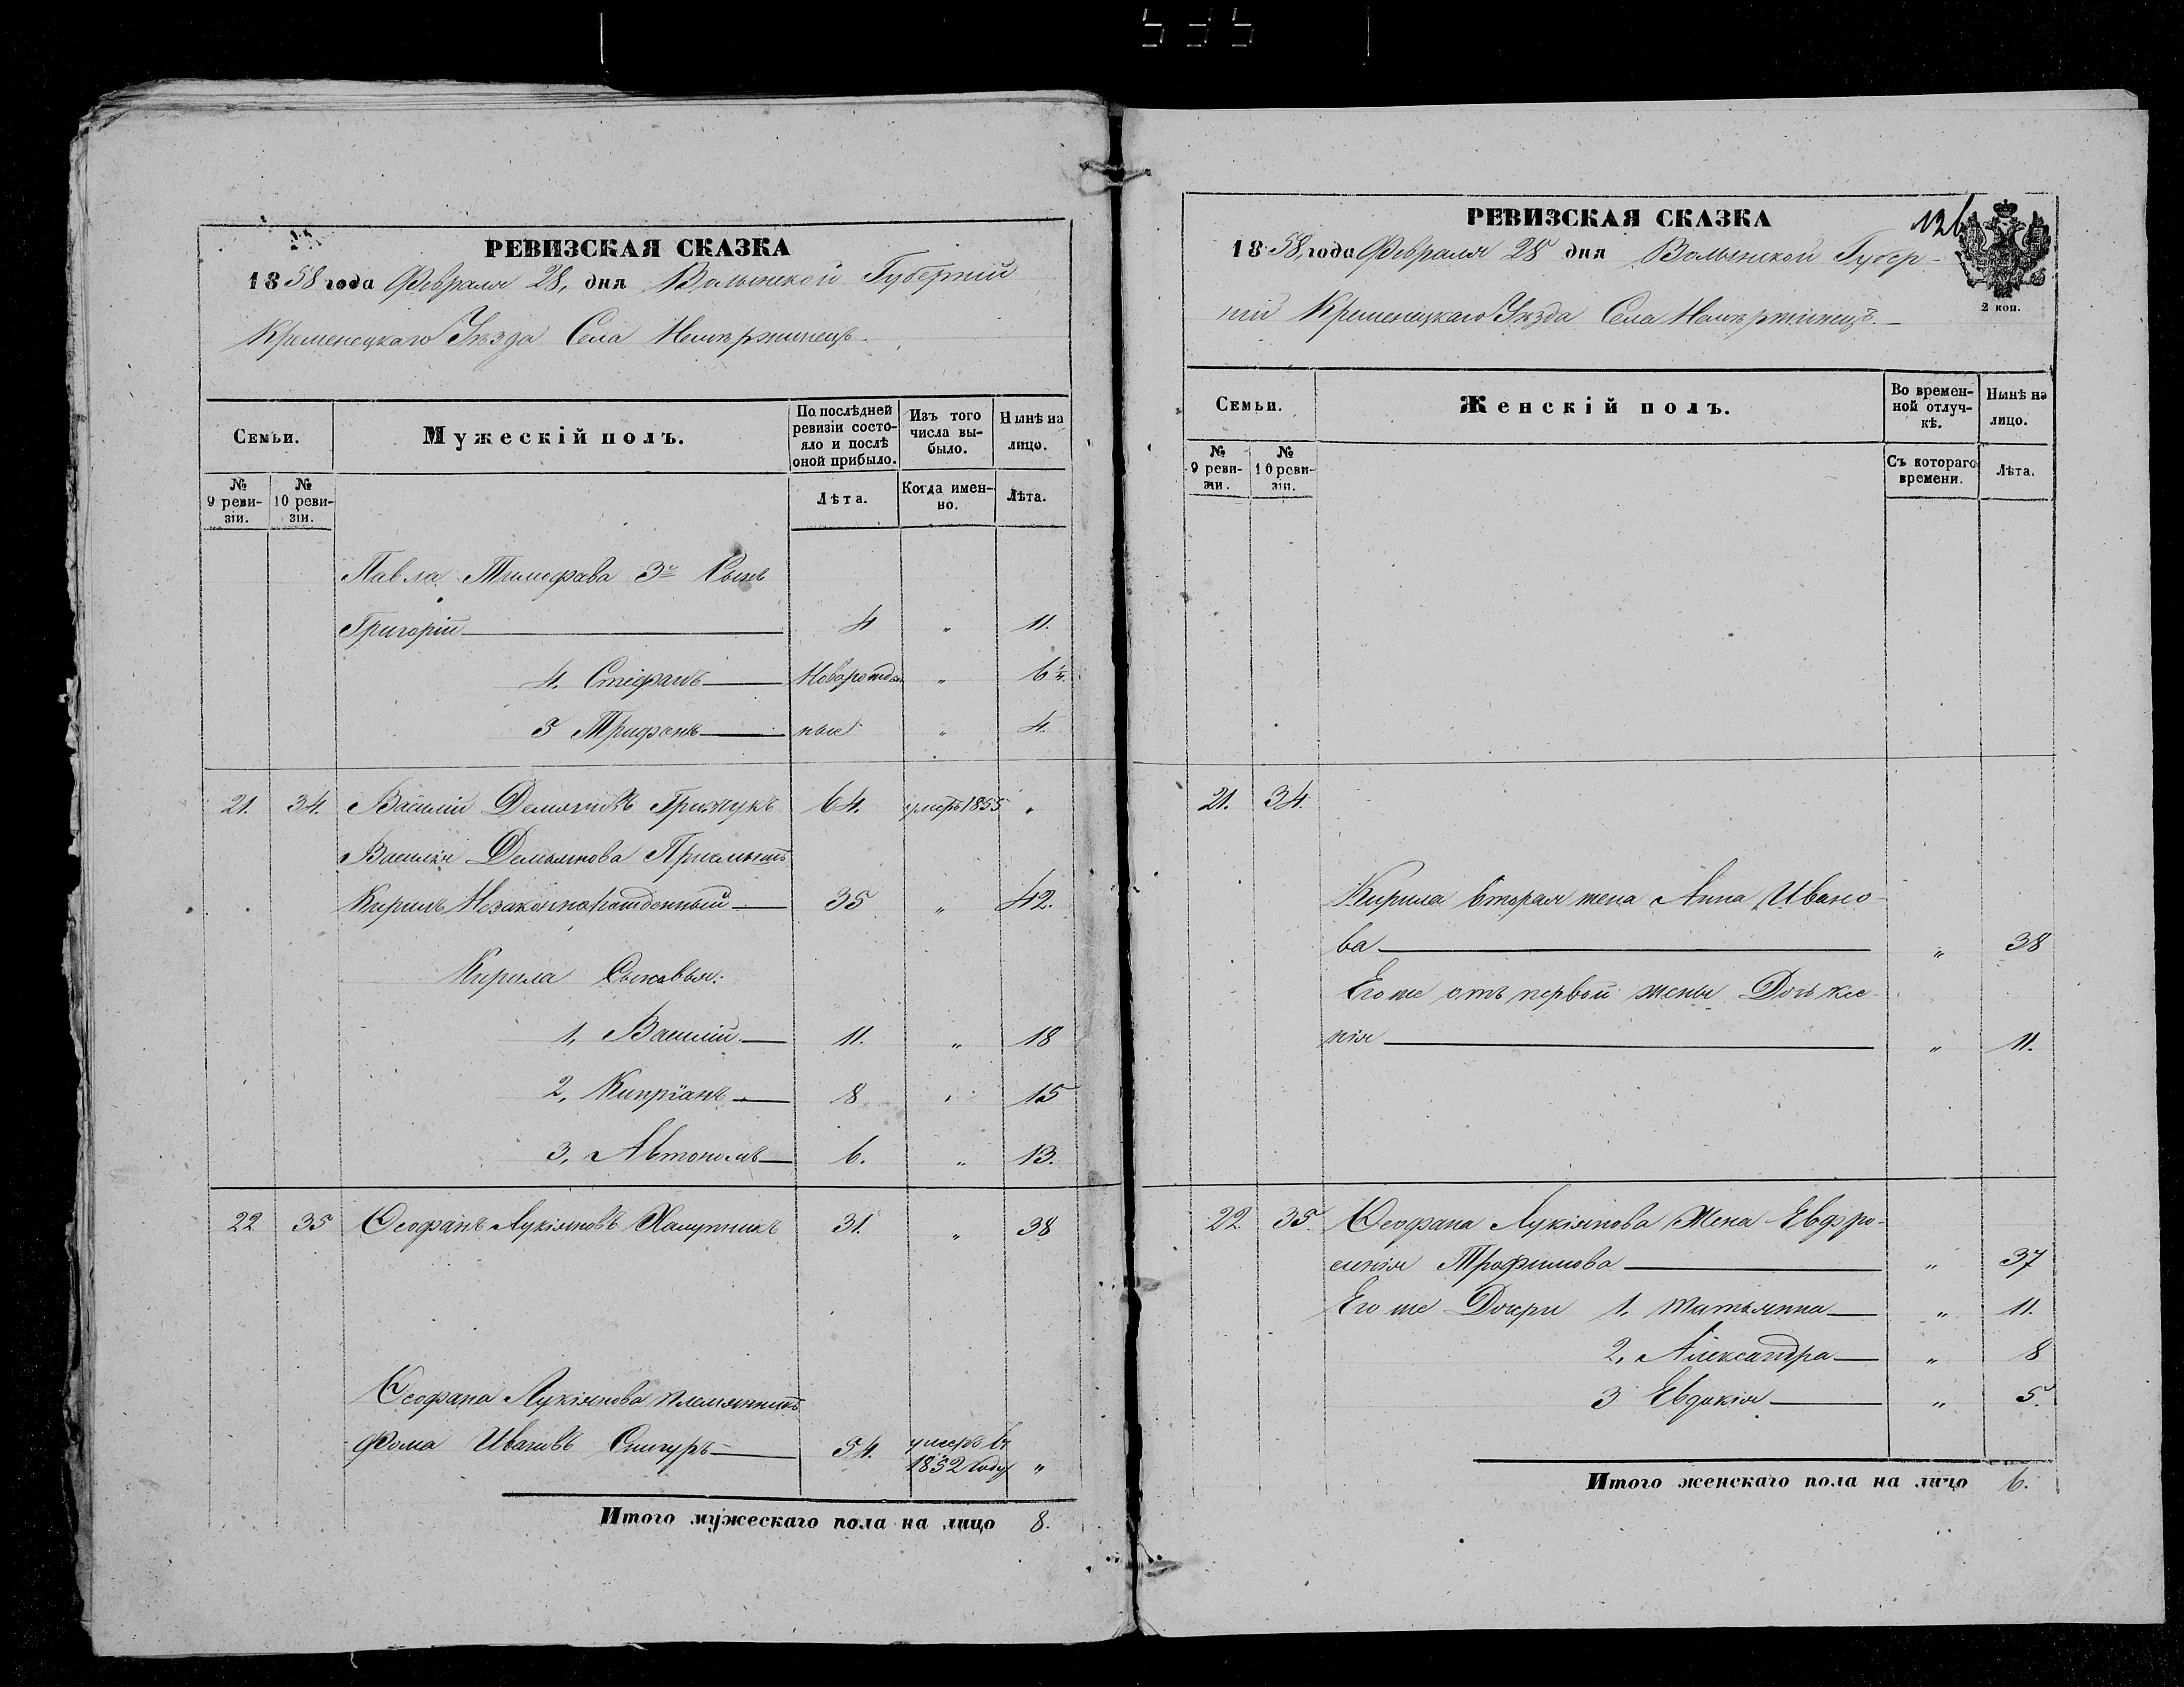 РЕВИЗСКАЯ СКАЗКА
1858 года Февраля 28, дня Волынской Губерніи
Кременецкаго Уѣзда Села Немѣржинецъ
Семьи.
Мужескій полъ.
По послѣдней ревизіи состояло и послѣ оной прибыло.
Изъ того числа выбыло.
Нынѣ на лицо.
№ 9 ревизіи.
№ 10 ревизіи.
Лѣта.
Когда именно.
Лѣта.
Павла Тимофѣва 3й Сынъ
Григорій 4 „ 11.
4. Стефанъ Новорожден „ 6½
5 Трифонъ ные „ 4.
21. 34. Василій Демяновъ Гришукъ 64. умеръ 1855 „
Василія Демьянова Приемышъ
Кирилъ Незаконнорожденный 35 „ 42.
Кирила Сыновья:
1, Василій 11. „ 18
2, Кипріанъ 8 „ 15
3, Автономъ 6. „ 13.
22 35 Ѳеофанъ Лукіяновъ Халупникъ 31. „ 38
Ѳеофана Лукіянова племянникъ
Фома Ивановъ Снигуръ 54. умеръ въ 1852 году „
Итого мужескаго пола на лицо 8.
РЕВИЗСКАЯ СКАЗКА
126
1858, года Февраля 28 дня Волынской Губер-
ніи Кременецкаго Уѣзда Села Немѣржинецъ.
2 коп.
Семьи.
Женскій полъ.
Во временной отлучкѣ.
Нынѣ на лицо.
№ 9 ревизіи.
№ 10 ревизіи.
Съ котораго времени.
Лѣта.
21. 34.
Кирила вторая жена Анна Ивано-
ва „ 38
Его же отъ первой жены Дочь Ксе-
нія „ 11.
22 35. Ѳеофана Лукіянова Жена Евфро-
синія Трофимова „ 37
Его же Дочери 1, Татьянна „ 11.
2, Александра „ 8
3 Евдокія „ 5.
Итого женскаго пола на лицо 6.